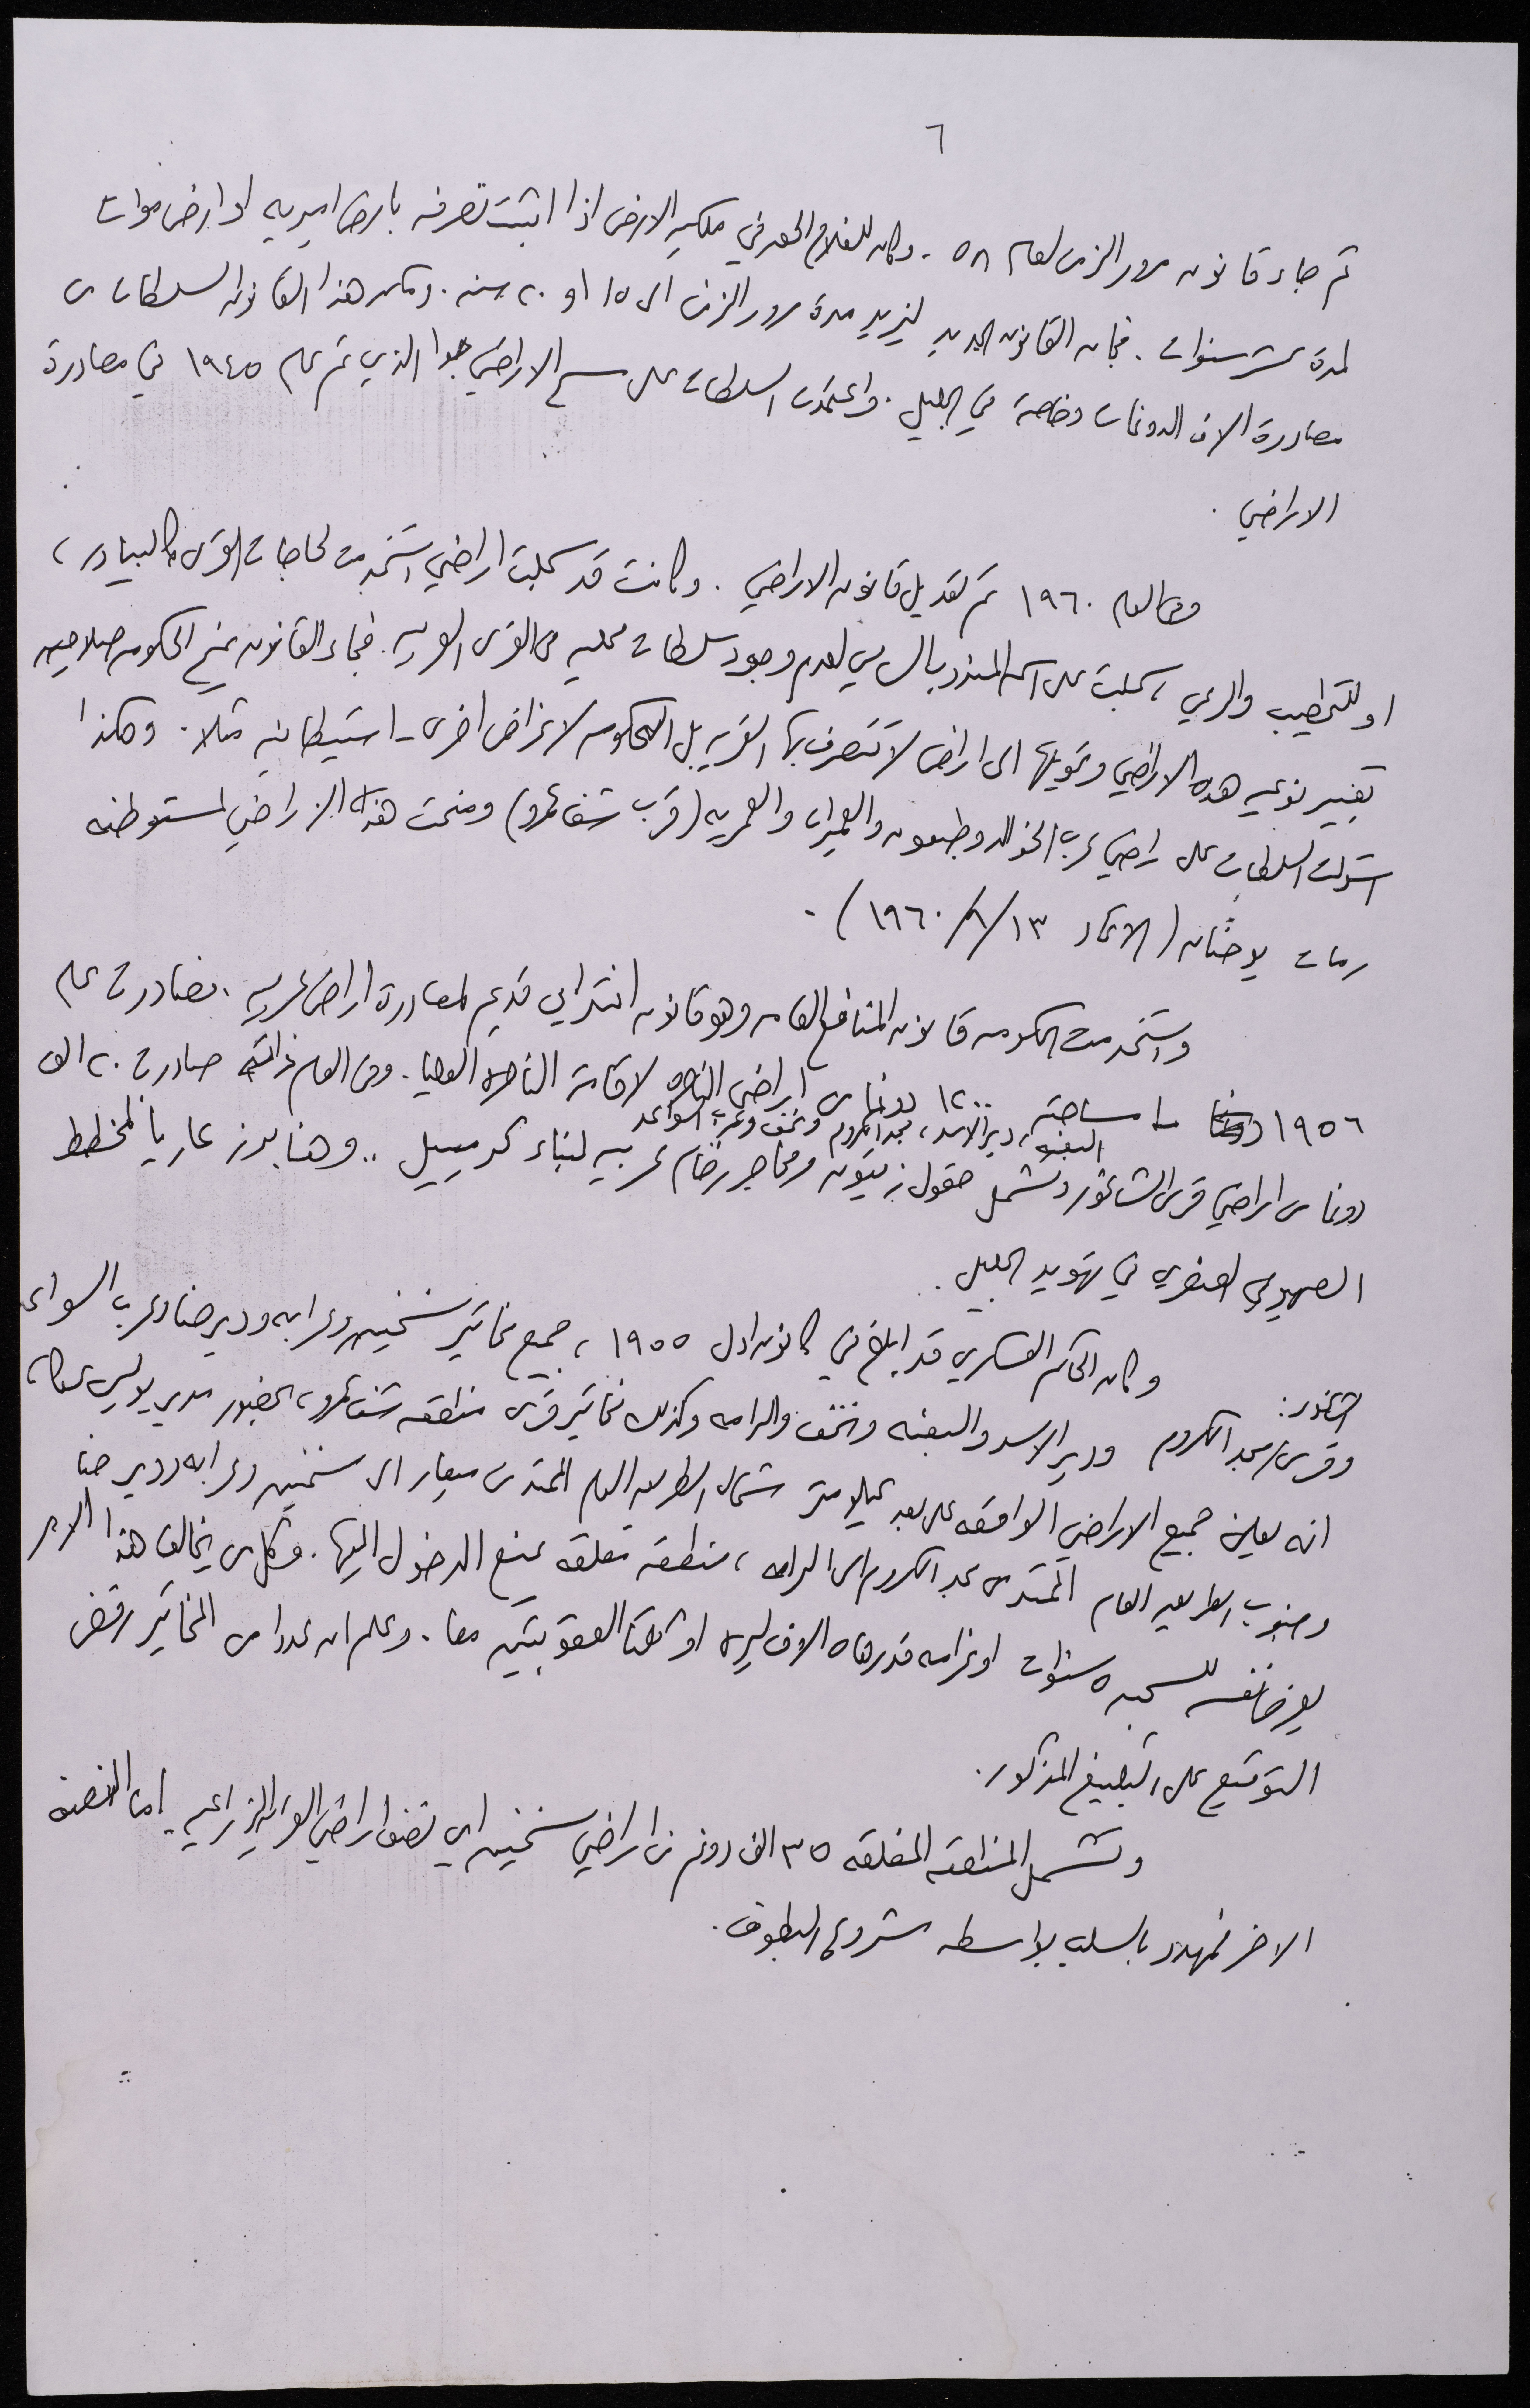 ٦
ثم جاء قانون مرور الزمن لعام ٥٨. وكان للفلاح الحق في ملكية الارض اذا اثبت تصرفه بارض اميريه او ارض موات
لمدة عشر سنوات. فجاء القانون الجديد ليزيد مدة مرور الزمن الى ١٥ او ٢٠ سنه. ومكن هذا القانون السلطات من
مصادرة الاف الدونمات وخاصة في الجليل. واعتمدت السلطات على مسح الاراضي جوا الذي تم عام ١٩٤٥ في مصادرة
الاراضي.
وفي العام ١٩٦٠ تم تعديل قانون الاراضي. وكانت قد سجلت اراضي استخدمت لحاجات القرى كالبيادر،
او للتحطيب والرعي، سجلت على اسم المندوب السامي لعدم وجود سلطات محليه في القرى العربيه. فجاء القانون يمنح الحكومه صلاحيه
تغيير نوعيه هذه الاراضي وتحويلها الى اراض لا تتصرف بها القريه بل الحكومه لاغراض اخرى - استيطانيه مثلا. وهكذا
استولت السلطات على اراضي عرب الخوالد وطبعون والعميرات والعمريه (قرب شفاعمرو) ومنحت هذه الاراضي لمستوطنه
رمات يوحنان (الاتحاد ١٣/٦/١٩٦٠).
واستخدمت الحكومه قانون المنافع العامه وهو قانون انتدابي قديم لمصادرة اراض عربيه، فصادرت عام
١٩٥٦ ما مساحته ١٢٠٠ دونما من اراضي الناصره لاقامة الناصره العليا. وفي العام ذاته صادرت ٢٠ الف
البعنه، دير الاسد، مجد الكروم ونحف وعرب السواعد
دونما من اراضي قرى الشاغور وتشمل حقول زيتون ومحاجر رخام عربيه لبناء كرميئيل .. وهنا برز عاريا المخطط
الصهيوني العنصري في تهويد الجليل.
وكان الحاكم العسكري قد ابلغ في كانون اول ١٩٥٥، جميع مخاتير سخنين وعرابه ودير حنا وعرب السواعد
الشاغور:
وقرى مجد الكروم ودير الاسد والبعنه ونحف والرامه وكذلك مخاتير قرى منطقه شفاعمرو، بحضور مدير بوليس عكا،
انه يعلن جميع الاراضي الواقعه على بعد كيلومتر شمال الطريق العام الممتد من ميعار الى سخنين وعرابه ودير حنا
وجنوب الطريق العام الممتد من مجد الكروم الى الرامه، منطقه مغلقه يمنع الدخول اليها. وكل من يخالف هذا الامر
يعرض نفسه للسجن ٥ سنوات او غرامه قدرها ٥ الاف ليره او كلتا العقوبتين معا. وعلم ان عددا من المخاتير رفض
التوقيع على التبليغ المذكور.
وتشمل المنطقه المغلقه ٣٥ الف دونم من اراضي سخنين اي نصف اراضي القريه الزراعيه. اما النصف
الاخر فمهدد بالسلب بواسطه مشروع البطوف.